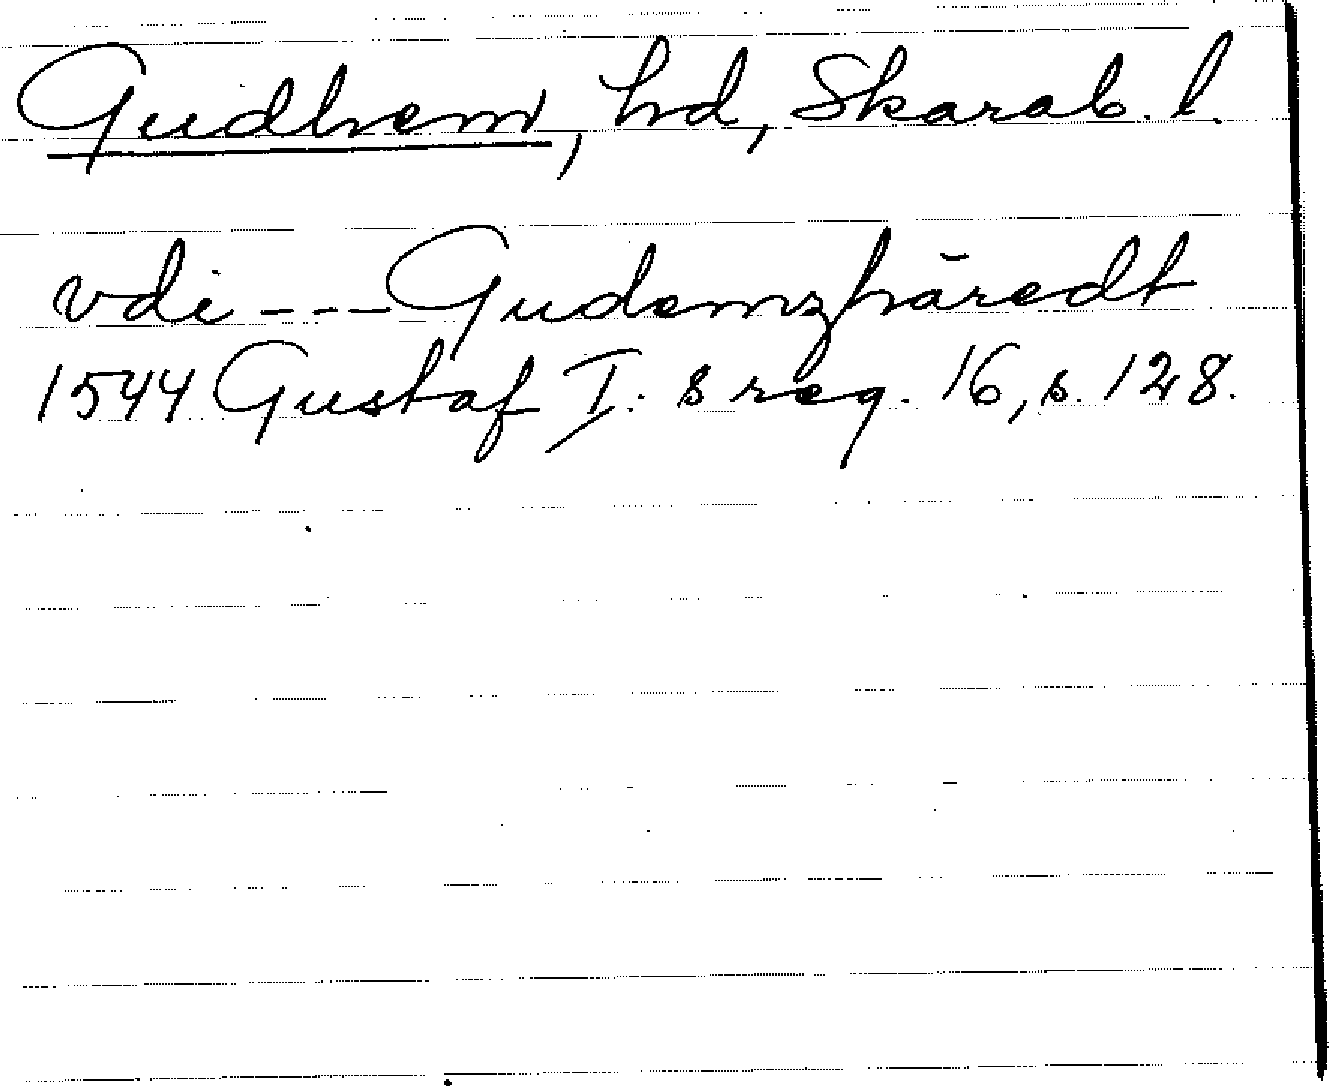 Gudhem, hd, Skarab. l.
vdi --- Gudemzhäredt
1544 Gustaf I:s reg. 16, s. 128.